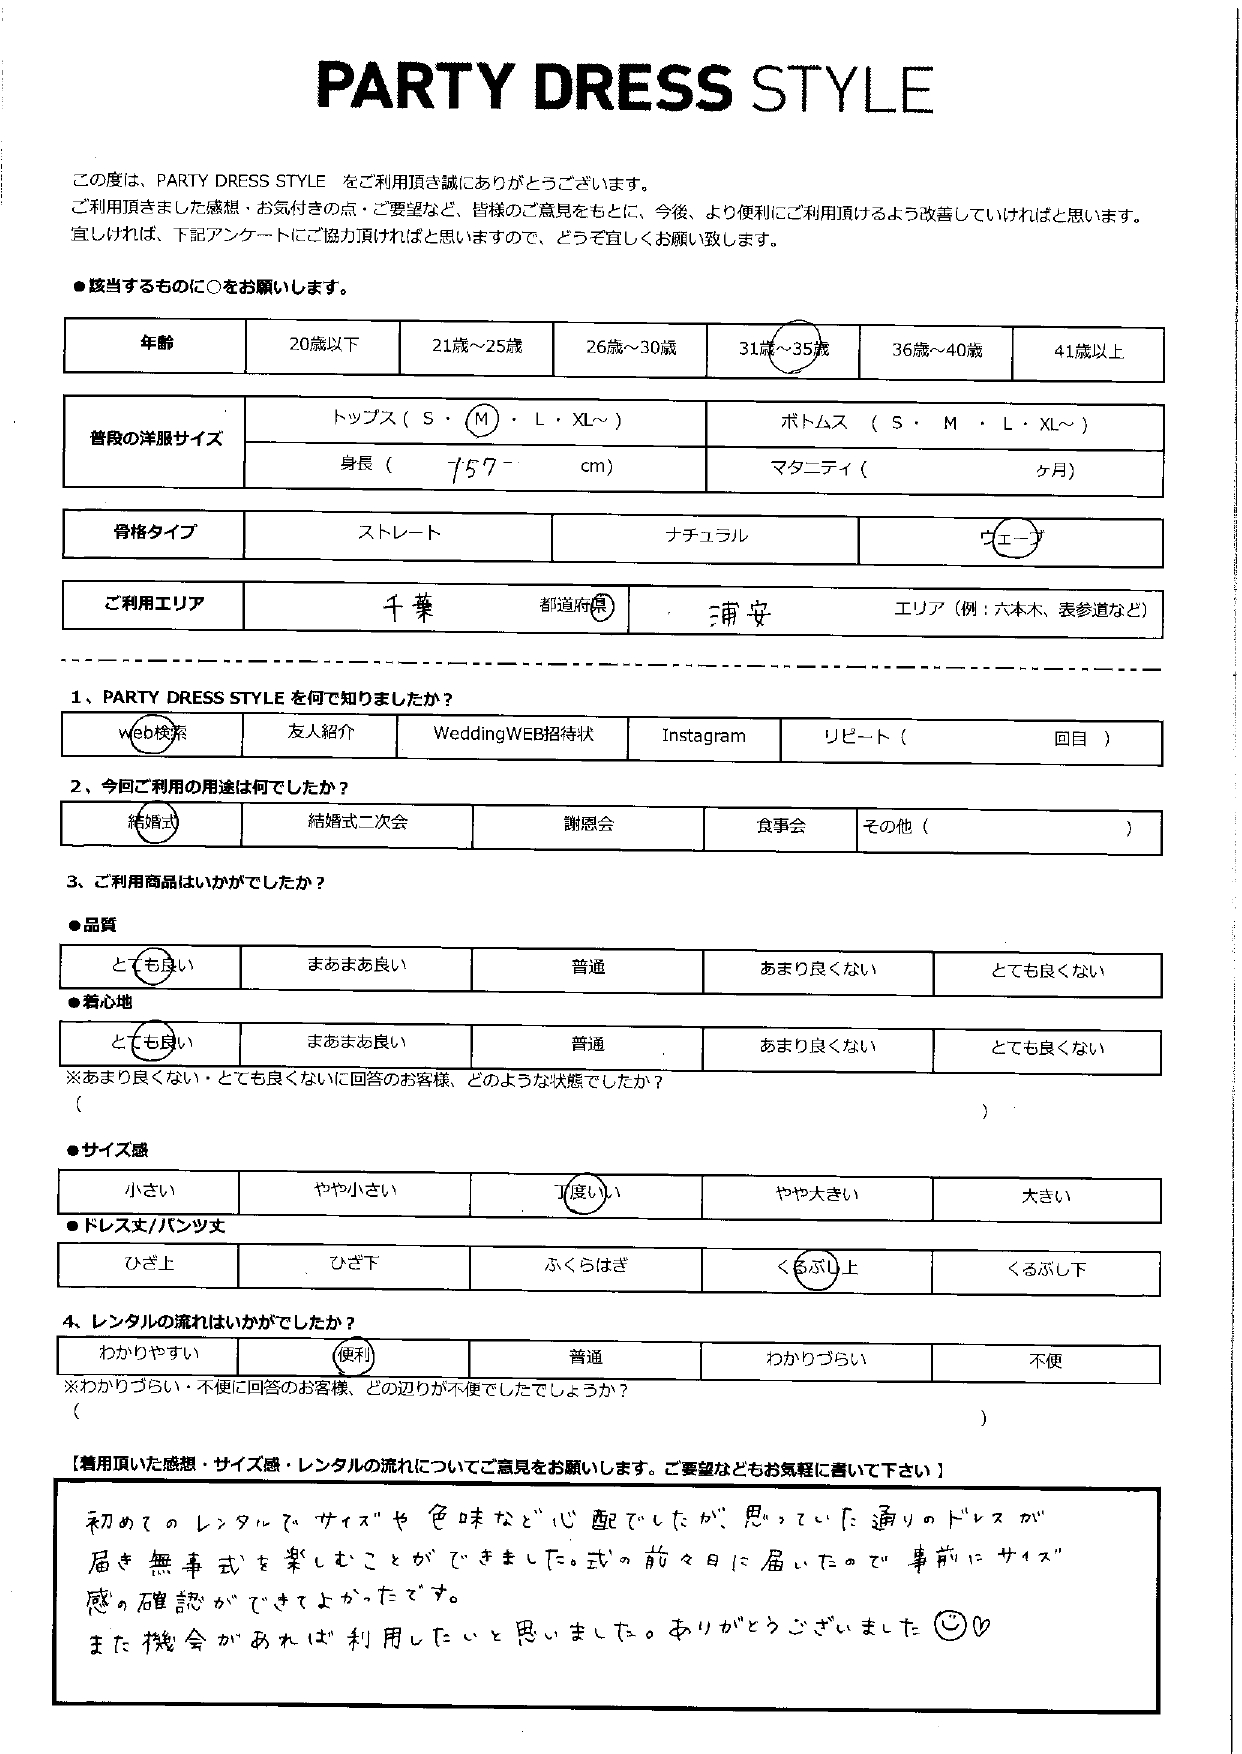 PARTY DRESS STYLE
この度は、PARTY DRESS STYLE をご利用頂き誠にありがとうございます。
ご利用頂きました感想・お気付きの点・ご要望など、皆様のご意見をもとに、今後、より便利にご利用頂けるよう改善していければと思います。
宜しければ、下記アンケートにご協力頂ければと思いますので、どうぞ宜しくお願い致します。
●該当するものに○をお願いします。
年齢 20歳以下 21歳～25歳 26歳～30歳 31歳～35歳 36歳～40歳 41歳以上
普段の洋服サイズ トップス ( S ・ M ・ L ・ XL～ ) ボトムス ( S ・ M ・ L ・ XL～ )
身長 ( 157 cm) マタニティ ( ヶ月)
骨格タイプ ストレート ナチュラル ウェーブ
ご利用エリア 千葉 都道府県 浦安 エリア（例：六本木、表参道など）
1、PARTY DRESS STYLE を何で知りましたか？
web検索 友人紹介 WeddingWEB招待状 Instagram リピート ( 回目 )
2、今回ご利用の用途は何でしたか？
結婚式 結婚式二次会 謝恩会 食事会 その他 ( )
3、ご利用商品はいかがでしたか？
●品質
とても良い まあまあ良い 普通 あまり良くない とても良くない
●着心地
とても良い まあまあ良い 普通 あまり良くない とても良くない
※あまり良くない・とても良くないに回答のお客様、どのような状態でしたか？
( )
●サイズ感
小さい やや小さい 丁度いい やや大きい 大きい
●ドレス丈/パンツ丈
ひざ上 ひざ下 ふくらはぎ くるぶし上 くるぶし下
4、レンタルの流れはいかがでしたか？
わかりやすい 便利 普通 わかりづらい 不便
※わかりづらい・不便に回答のお客様、どの辺りが不便でしたでしょうか？
( )
【着用頂いた感想・サイズ感・レンタルの流れについてご意見をお願いします。ご要望などもお気軽に書いて下さい】
初めてのレンタルでサイズや色味など心配でしたが、思っていた通りのドレスが
届き無事式を楽しむことができました。式の前々日に届いたので事前にサイズ
感の確認ができてよかったです。
また機会があれば利用したいと思いました。ありがとうございました☺♡